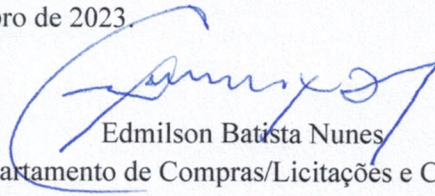 ro de 2023.
Edmilson Batista Nunes
artamento de Compras/Licitações e C